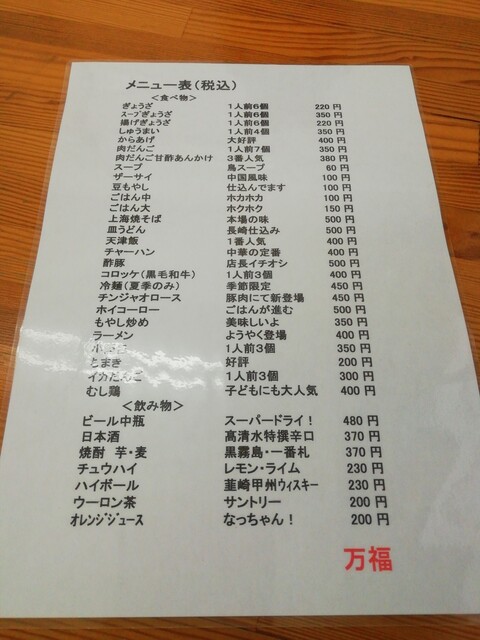 メニュー表(税込)
＜食べ物＞
ぎょうざ 1人前6個 220円
スープぎょうざ 1人前6個 350円
揚げぎょうざ 1人前6個 220円
しゅうまい 1人前4個 350円
からあげ 大好評 400円
肉だんご 1人前7個 350円
肉だんご甘酢あんかけ 3番人気 380円
スープ 鳥スープ 60円
ザーサイ 中国風味 100円
豆もやし 仕込んでます 100円
ごはん中 ホカホカ 100円
ごはん大 ホクホク 150円
上海焼そば 本場の味 500円
皿うどん 長崎仕込み 500円
天津飯 1番人気 400円
チャーハン 中華の定番 400円
酢豚 店長イチオシ 500円
コロッケ(黒毛和牛) 1人前3個 400円
冷麺(夏季のみ) 季節限定 450円
チンジャオロース 豚肉にて新登場 450円
ホイコーロー ごはんが進む 500円
もやし炒め 美味しいよ 350円
ラーメン ようやく登場 400円
1人前3個 350円
好評 200円
イカだんご 1人前3個 300円
むし鶏 子どもにも大人気 400円
＜飲み物＞
ビール中瓶 スーパードライ! 480円
日本酒 高清水特撰辛口 370円
焼酎 芋・麦 黒霧島・一番札 370円
チュウハイ レモン・ライム 230円
ハイボール 韮崎甲州ウィスキー 230円
ウーロン茶 サントリー 200円
オレンジジュース なっちゃん! 200円
万福